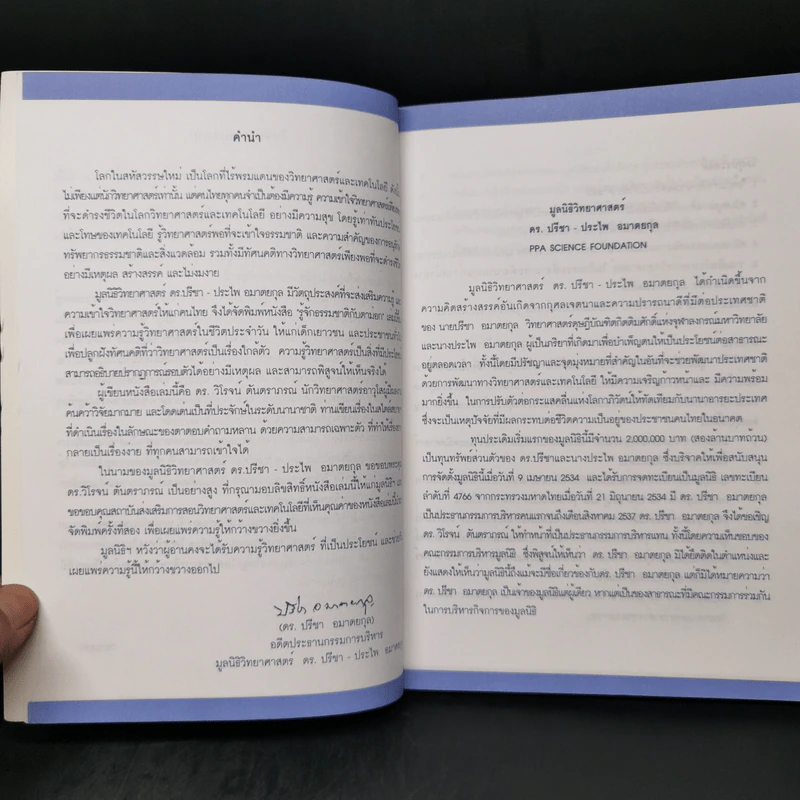 คำนำ
โลกในสหัสวรรษใหม่ เป็นโลกที่ไร้พรมแดนของวิทยาศาสตร์และเทคโนโลยี
ไม่เพียงแต่นักวิทยาศาสตร์เท่านั้น แต่คนไทยทุกคนจำเป็นต้องมีความรู้ ความเข้าใจวิทยาศาสตร์
ที่จะดำรงชีวิตในโลกวิทยาศาสตร์และเทคโนโลยี อย่างมีความสุข โดยรู้เท่าทันประโยชน์
และโทษของเทคโนโลยี รู้วิทยาศาสตร์พอที่จะเข้าใจธรรมชาติ และความสำคัญของการอนุรักษ์
ทรัพยากรธรรมชาติและสิ่งแวดล้อม รวมทั้งมีทัศนคติทางวิทยาศาสตร์เพียงพอที่จะดำรงชีวิต
อย่างมีเหตุผล สร้างสรรค์ และไม่งมงาย
มูลนิธิวิทยาศาสตร์ ดร.ปรีชา - ประไพ อมาตยกุล มีวัตถุประสงค์ที่จะส่งเสริมความรู้ และ
ความเข้าใจวิทยาศาสตร์ให้แก่คนไทย จึงได้จัดพิมพ์หนังสือ "รู้จักธรรมชาติกับตามอก"
เพื่อเผยแพร่ความรู้วิทยาศาสตร์ในชีวิตประจำวัน ให้แก่เด็กเยาวชน และประชาชนทั่วไป
เพื่อปลูกฝังทัศนคติที่ว่าวิทยาศาสตร์เป็นเรื่องใกล้ตัว ความรู้วิทยาศาสตร์เป็นสิ่งที่มีประโยชน์
สามารถอธิบายปรากฏการณ์รอบตัวได้อย่างมีเหตุผล และสามารถพิสูจน์ให้เห็นจริงได้
ผู้เขียนหนังสือเล่มนี้คือ ดร. วิโรจน์ ตันตราภรณ์ นักวิทยาศาสตร์อาวุโสผู้มีผลงาน
ค้นคว้าวิจัยมากมาย และโดดเด่นเป็นที่ประจักษ์ในระดับนานาชาติ ท่านเขียนเรื่องในสไตล์สบายๆ
ที่ดำเนินเรื่องในลักษณะของตาตอบคำถามหลาน ด้วยความสามารถเฉพาะตัว ที่ทำให้เรื่อง
กลายเป็นเรื่องง่าย ที่ทุกคนสามารถเข้าใจได้
ในนามของมูลนิธิวิทยาศาสตร์ ดร.ปรีชา - ประไพ อมาตยกุล ขอขอบพระคุณ
ดร.วิโรจน์ ตันตราภรณ์ เป็นอย่างสูง ที่กรุณามอบลิขสิทธิ์หนังสือเล่มนี้ให้แก่มูลนิธิฯ และ
ขอขอบคุณสถาบันส่งเสริมการสอนวิทยาศาสตร์และเทคโนโลยีที่เห็นคุณค่าของหนังสือเล่มนี้
จัดพิมพ์ครั้งที่สอง เพื่อเผยแพร่ความรู้ให้กว้างขวางยิ่งขึ้น
มูลนิธิฯ หวังว่าผู้อ่านคงจะได้รับความรู้วิทยาศาสตร์ ที่เป็นประโยชน์ และช่วย
เผยแพร่ความรู้นี้ให้กว้างขวางออกไป
ปรีชา อมาตยกุล
(ดร. ปรีชา อมาตยกุล)
อดีตประธานกรรมการบริหาร
มูลนิธิวิทยาศาสตร์ ดร. ปรีชา - ประไพ อมาตยกุล
มูลนิธิวิทยาศาสตร์
ดร. ปรีชา - ประไพ อมาตยกุล
PPA SCIENCE FOUNDATION
มูลนิธิวิทยาศาสตร์ ดร. ปรีชา - ประไพ อมาตยกุล ได้กำเนิดขึ้นจาก
ความคิดสร้างสรรค์อันเกิดจากกุศลเจตนาและความปรารถนาดีที่มีต่อประเทศชาติ
ของ นายปรีชา อมาตยกุล วิทยาศาสตร์ดุษฎีบัณฑิตกิตติมศักดิ์แห่งจุฬาลงกรณ์มหาวิทยาลัย
และนางประไพ อมาตยกุล ผู้เป็นภริยาที่เกิดมาเพื่อบำเพ็ญตนให้เป็นประโยชน์ต่อสาธารณะ
อยู่ตลอดเวลา ทั้งนี้โดยมีปรัชญาและจุดมุ่งหมายที่สำคัญในอันที่จะช่วยพัฒนาประเทศชาติ
ด้วยการพัฒนาทางวิทยาศาสตร์และเทคโนโลยี ให้มีความเจริญก้าวหน้าและ มีความพร้อม
มากยิ่งขึ้น ในการปรับตัวต่อกระแสคลื่นแห่งโลกาภิวัตน์ให้ทัดเทียมกับนานาอารยะประเทศ
ซึ่งจะเป็นเหตุปัจจัยที่มีผลกระทบต่อชีวิตความเป็นอยู่ของประชาชนคนไทยในอนาคต
ทุนประเดิมเริ่มแรกของมูลนิธินี้มีจำนวน 2,000,000 บาท (สองล้านบาทถ้วน)
เป็นทุนทรัพย์ส่วนตัวของ ดร.ปรีชาและนางประไพ อมาตยกุล ซึ่งบริจาคให้เพื่อสนับสนุน
การจัดตั้งมูลนิธินี้เมื่อวันที่ 9 เมษายน 2534 และได้รับการจดทะเบียนเป็นมูลนิธิ เลขทะเบียน
ลำดับที่ 4766 จากกระทรวงมหาดไทยเมื่อวันที่ 21 มิถุนายน 2534 มี ดร. ปรีชา อมาตยกุล
เป็นประธานกรรมการบริหารคนแรกจนถึงเดือนสิงหาคม 2537 ดร. ปรีชา อมาตยกุล จึงได้ขอเชิญ
ดร. วิโรจน์ ตันตราภรณ์ ให้ทำหน้าที่เป็นประธานกรรมการบริหารแทน ทั้งนี้โดยความเห็นชอบของ
คณะกรรมการบริหารมูลนิธิ ซึ่งพิสูจน์ให้เห็นว่า ดร. ปรีชา อมาตยกุล มิได้ยึดติดในตำแหน่งและ
ยังแสดงให้เห็นว่ามูลนิธินี้ถึงแม้จะมีชื่อเกี่ยวข้องกับดร. ปรีชา อมาตยกุล แต่ก็มิได้หมายความว่า
ดร. ปรีชา อมาตยกุล เป็นเจ้าของมูลนิธิแต่ผู้เดียว หากแต่เป็นของสาธารณะที่มีคณะกรรมการร่วมกัน
ในการบริหารกิจการของมูลนิธิ